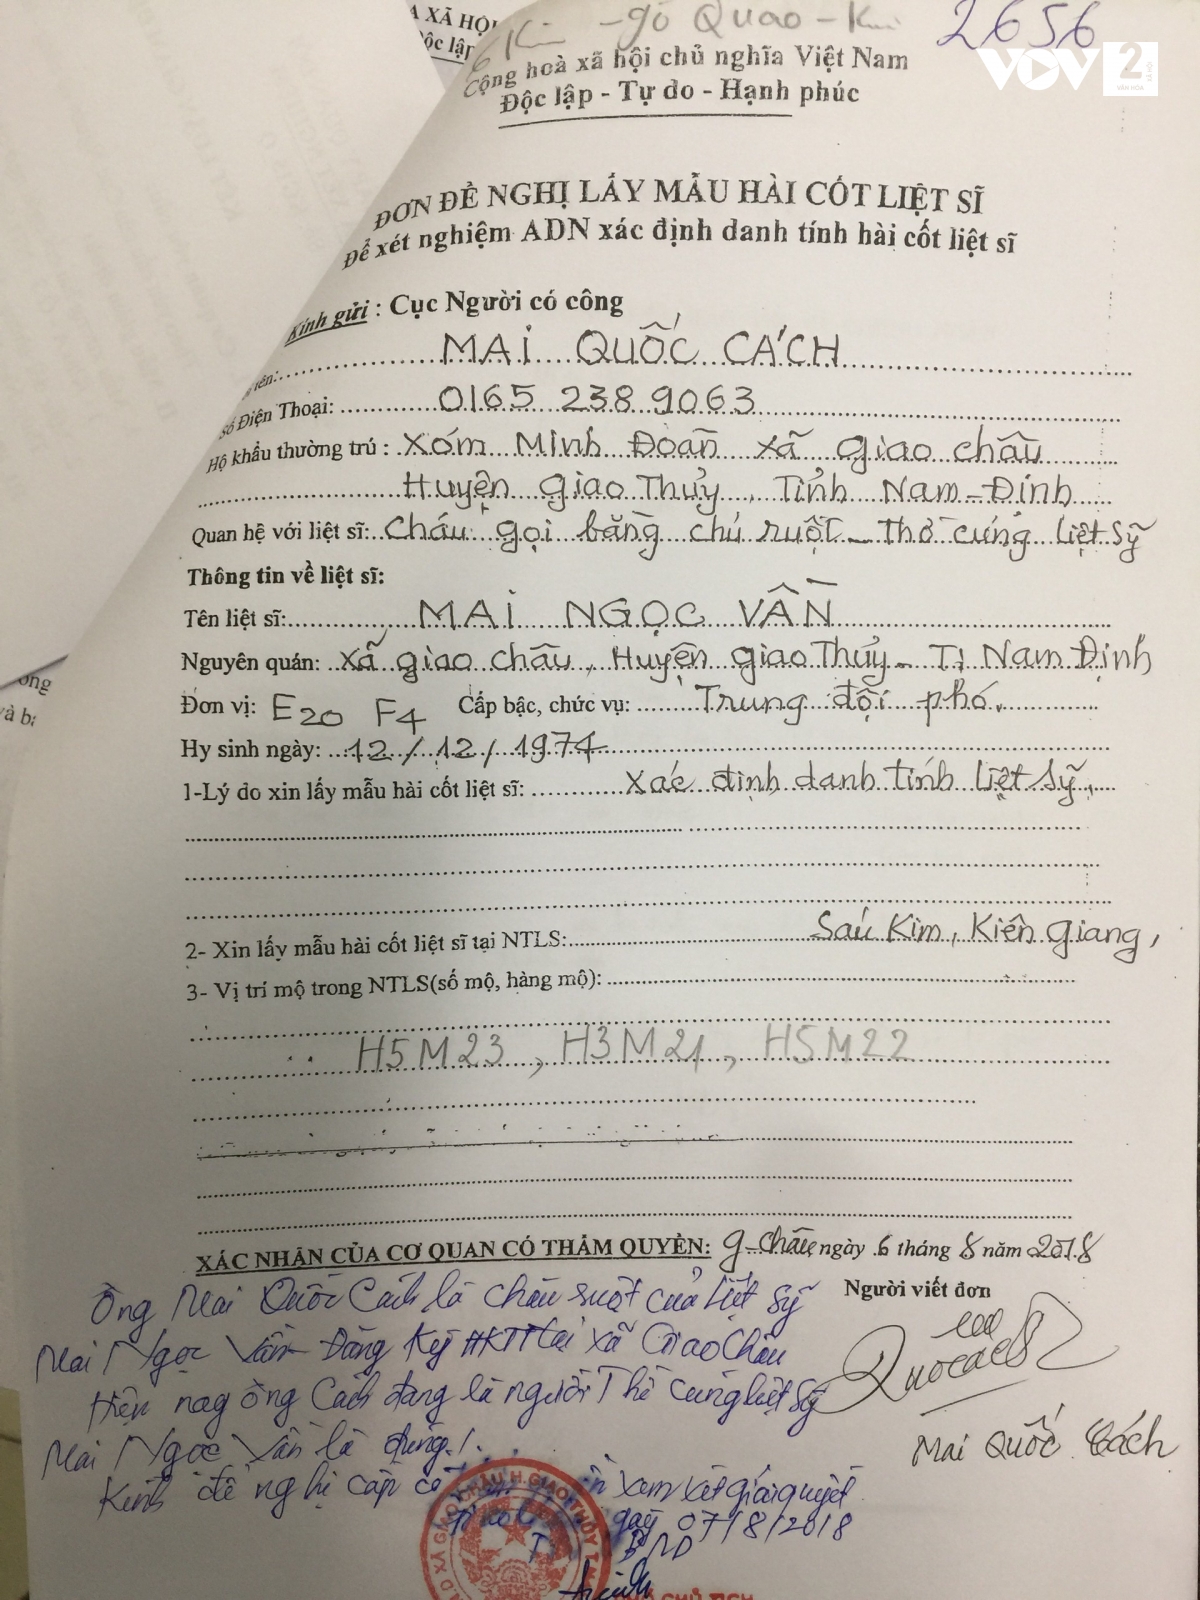 A XÃ HỘI
Độc lập
gò Quao - Ki
2656
VOV2
VĂN HÓA
XÃ HỘI
Cộng hoà xã hội chủ nghĩa Việt Nam
Độc lập - Tự do - Hạnh phúc
ĐƠN ĐỀ NGHỊ LẤY MẪU HÀI CỐT LIỆT SĨ
Để xét nghiệm ADN xác định danh tính hài cốt liệt sĩ
Kính gửi : Cục Người có công
tên: MAI QUỐC CÁCH
Số Điện Thoại: 0165 238 9063
Hộ khẩu thường trú : Xóm Minh Đoàn xã giao châu
Huyện giao Thủy, Tỉnh Nam-Định
Quan hệ với liệt sĩ: Cháu gọi bằng chú ruột - Thờ cúng liệt sỹ
Thông tin về liệt sĩ:
Tên liệt sĩ: MAI NGỌC VẦN
Nguyên quán: Xã giao châu, Huyện giao Thủy - T. Nam Định
Đơn vị: E20 F4 Cấp bậc, chức vụ: Trung đội phó.
Hy sinh ngày: 12/12/1974
1-Lý do xin lấy mẫu hài cốt liệt sĩ: Xác định danh tính liệt sỹ.
2- Xin lấy mẫu hài cốt liệt sĩ tại NTLS: Sáu Kim, Kiên giang,
3- Vị trí mộ trong NTLS(số mộ, hàng mộ):
H5M23, H3M21, H5M22
XÁC NHẬN CỦA CƠ QUAN CÓ THẨM QUYỀN: g-Châu, ngày 6 tháng 8 năm 2018
Người viết đơn
Ông Mai Quốc Cách là cháu ruột của Liệt sỹ
Mai Ngọc Vần Đăng ký HKTT tại xã Giao Châu
Hiện nay ông Cách đang là người Thờ cúng liệt sỹ
Mai Ngọc Vần là đúng.!
Kính đề nghị cấp có xem xét giải quyết
Mai Quốc Cách
ngày 07/8/2018
U.B.N.D XÃ GIAO CHÂU H.GIAO THỦY T.
CHỦ TỊCH